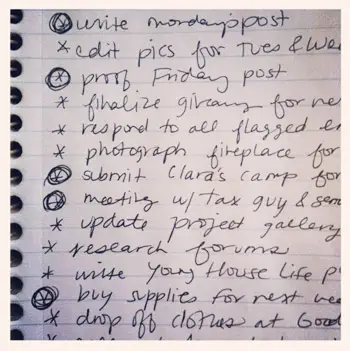 write monday's post
* edit pics for Tues & Wed
proof Friday post
* finalize giveaway for
* respond to all flagged
* photograph fireplace for
submit Clara's camp for
meeting w/ tax guy &
* update project gallery
* research forums
* write Young House Life
buy supplies for next
* drop off clothes at